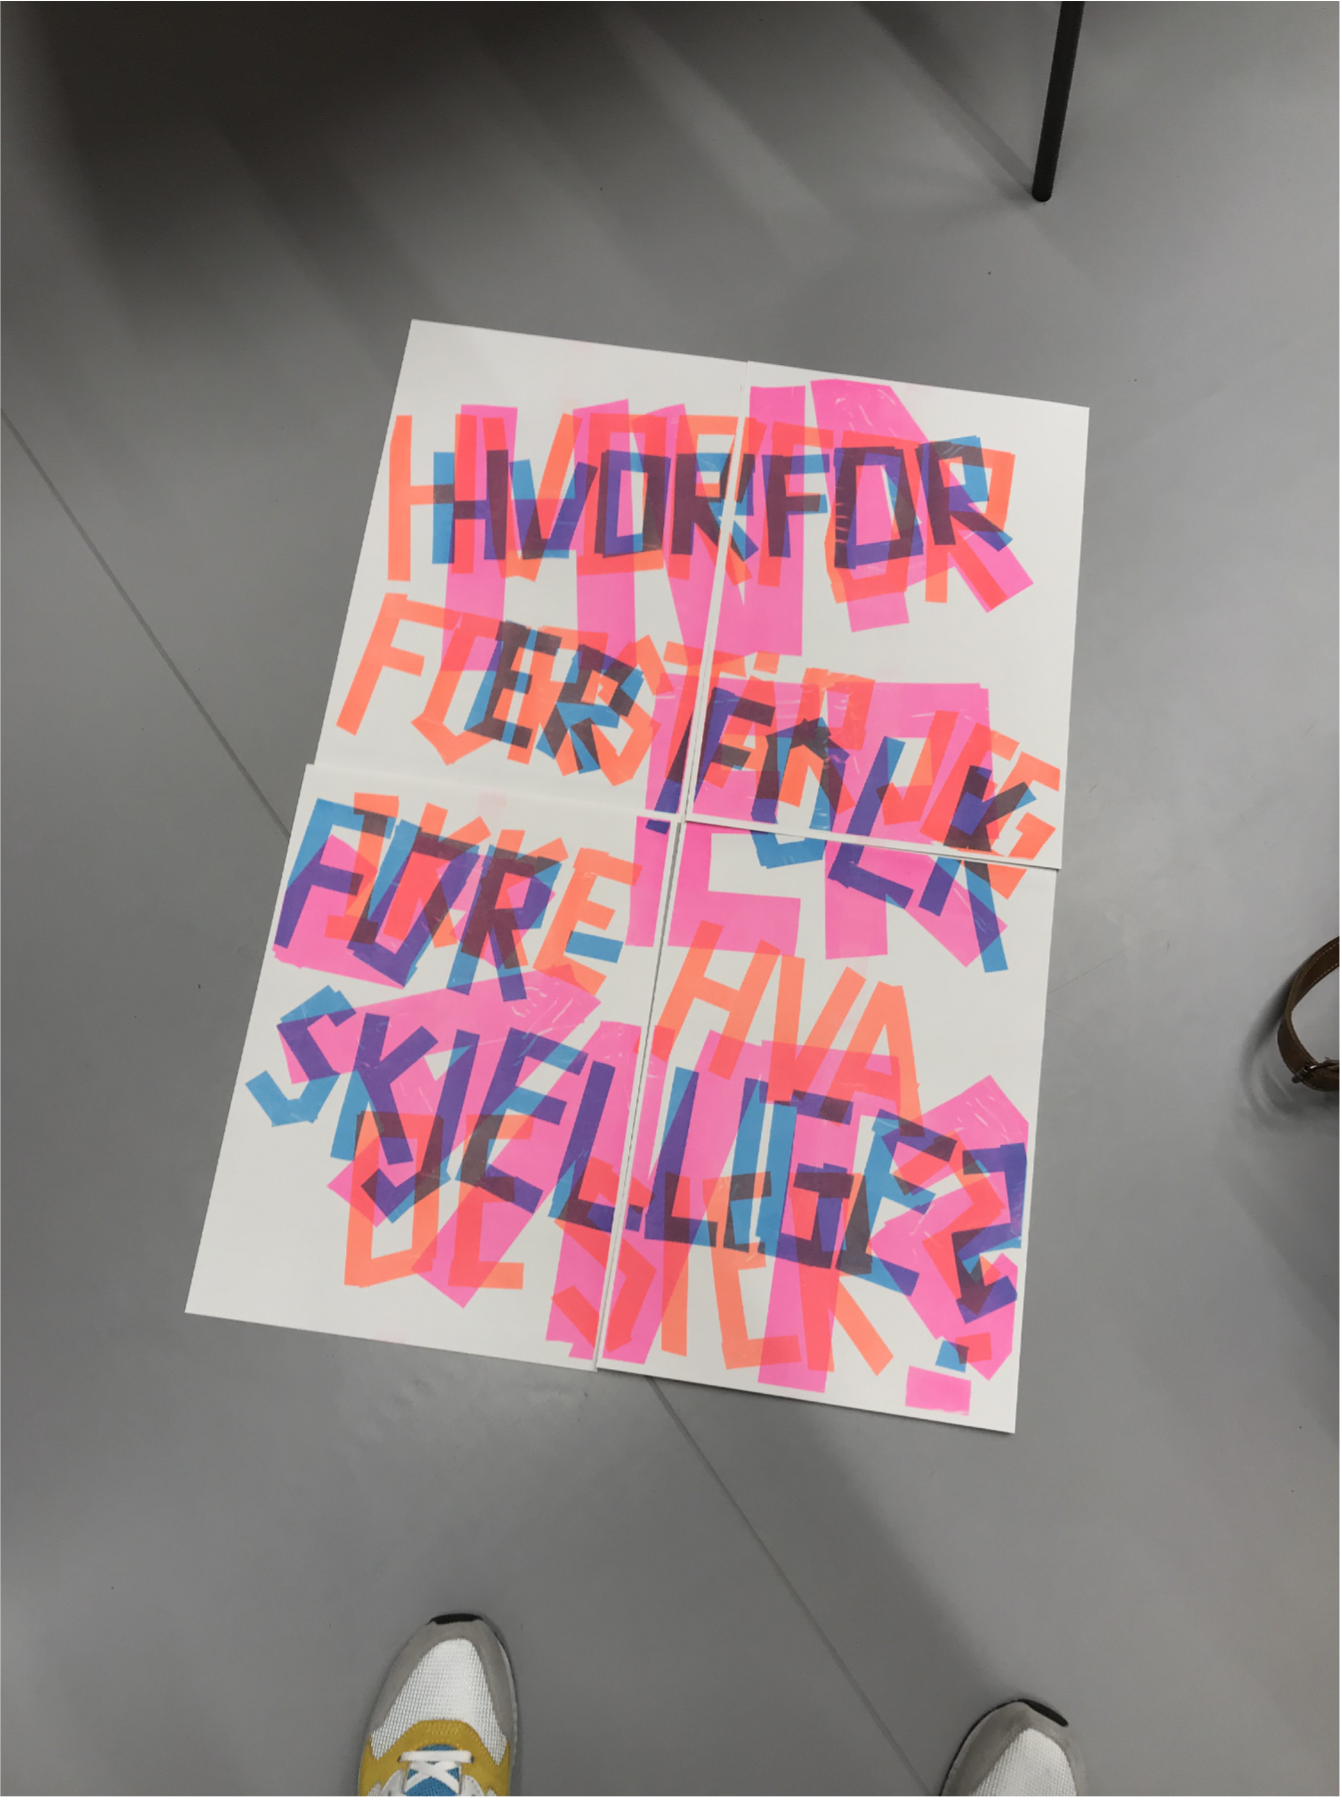 HVORFOR
FORSTÅR JEG
IKKE HVA
DE SIER?
HVORFOR
ER FOLK
FOR-
SKJELLIGE?